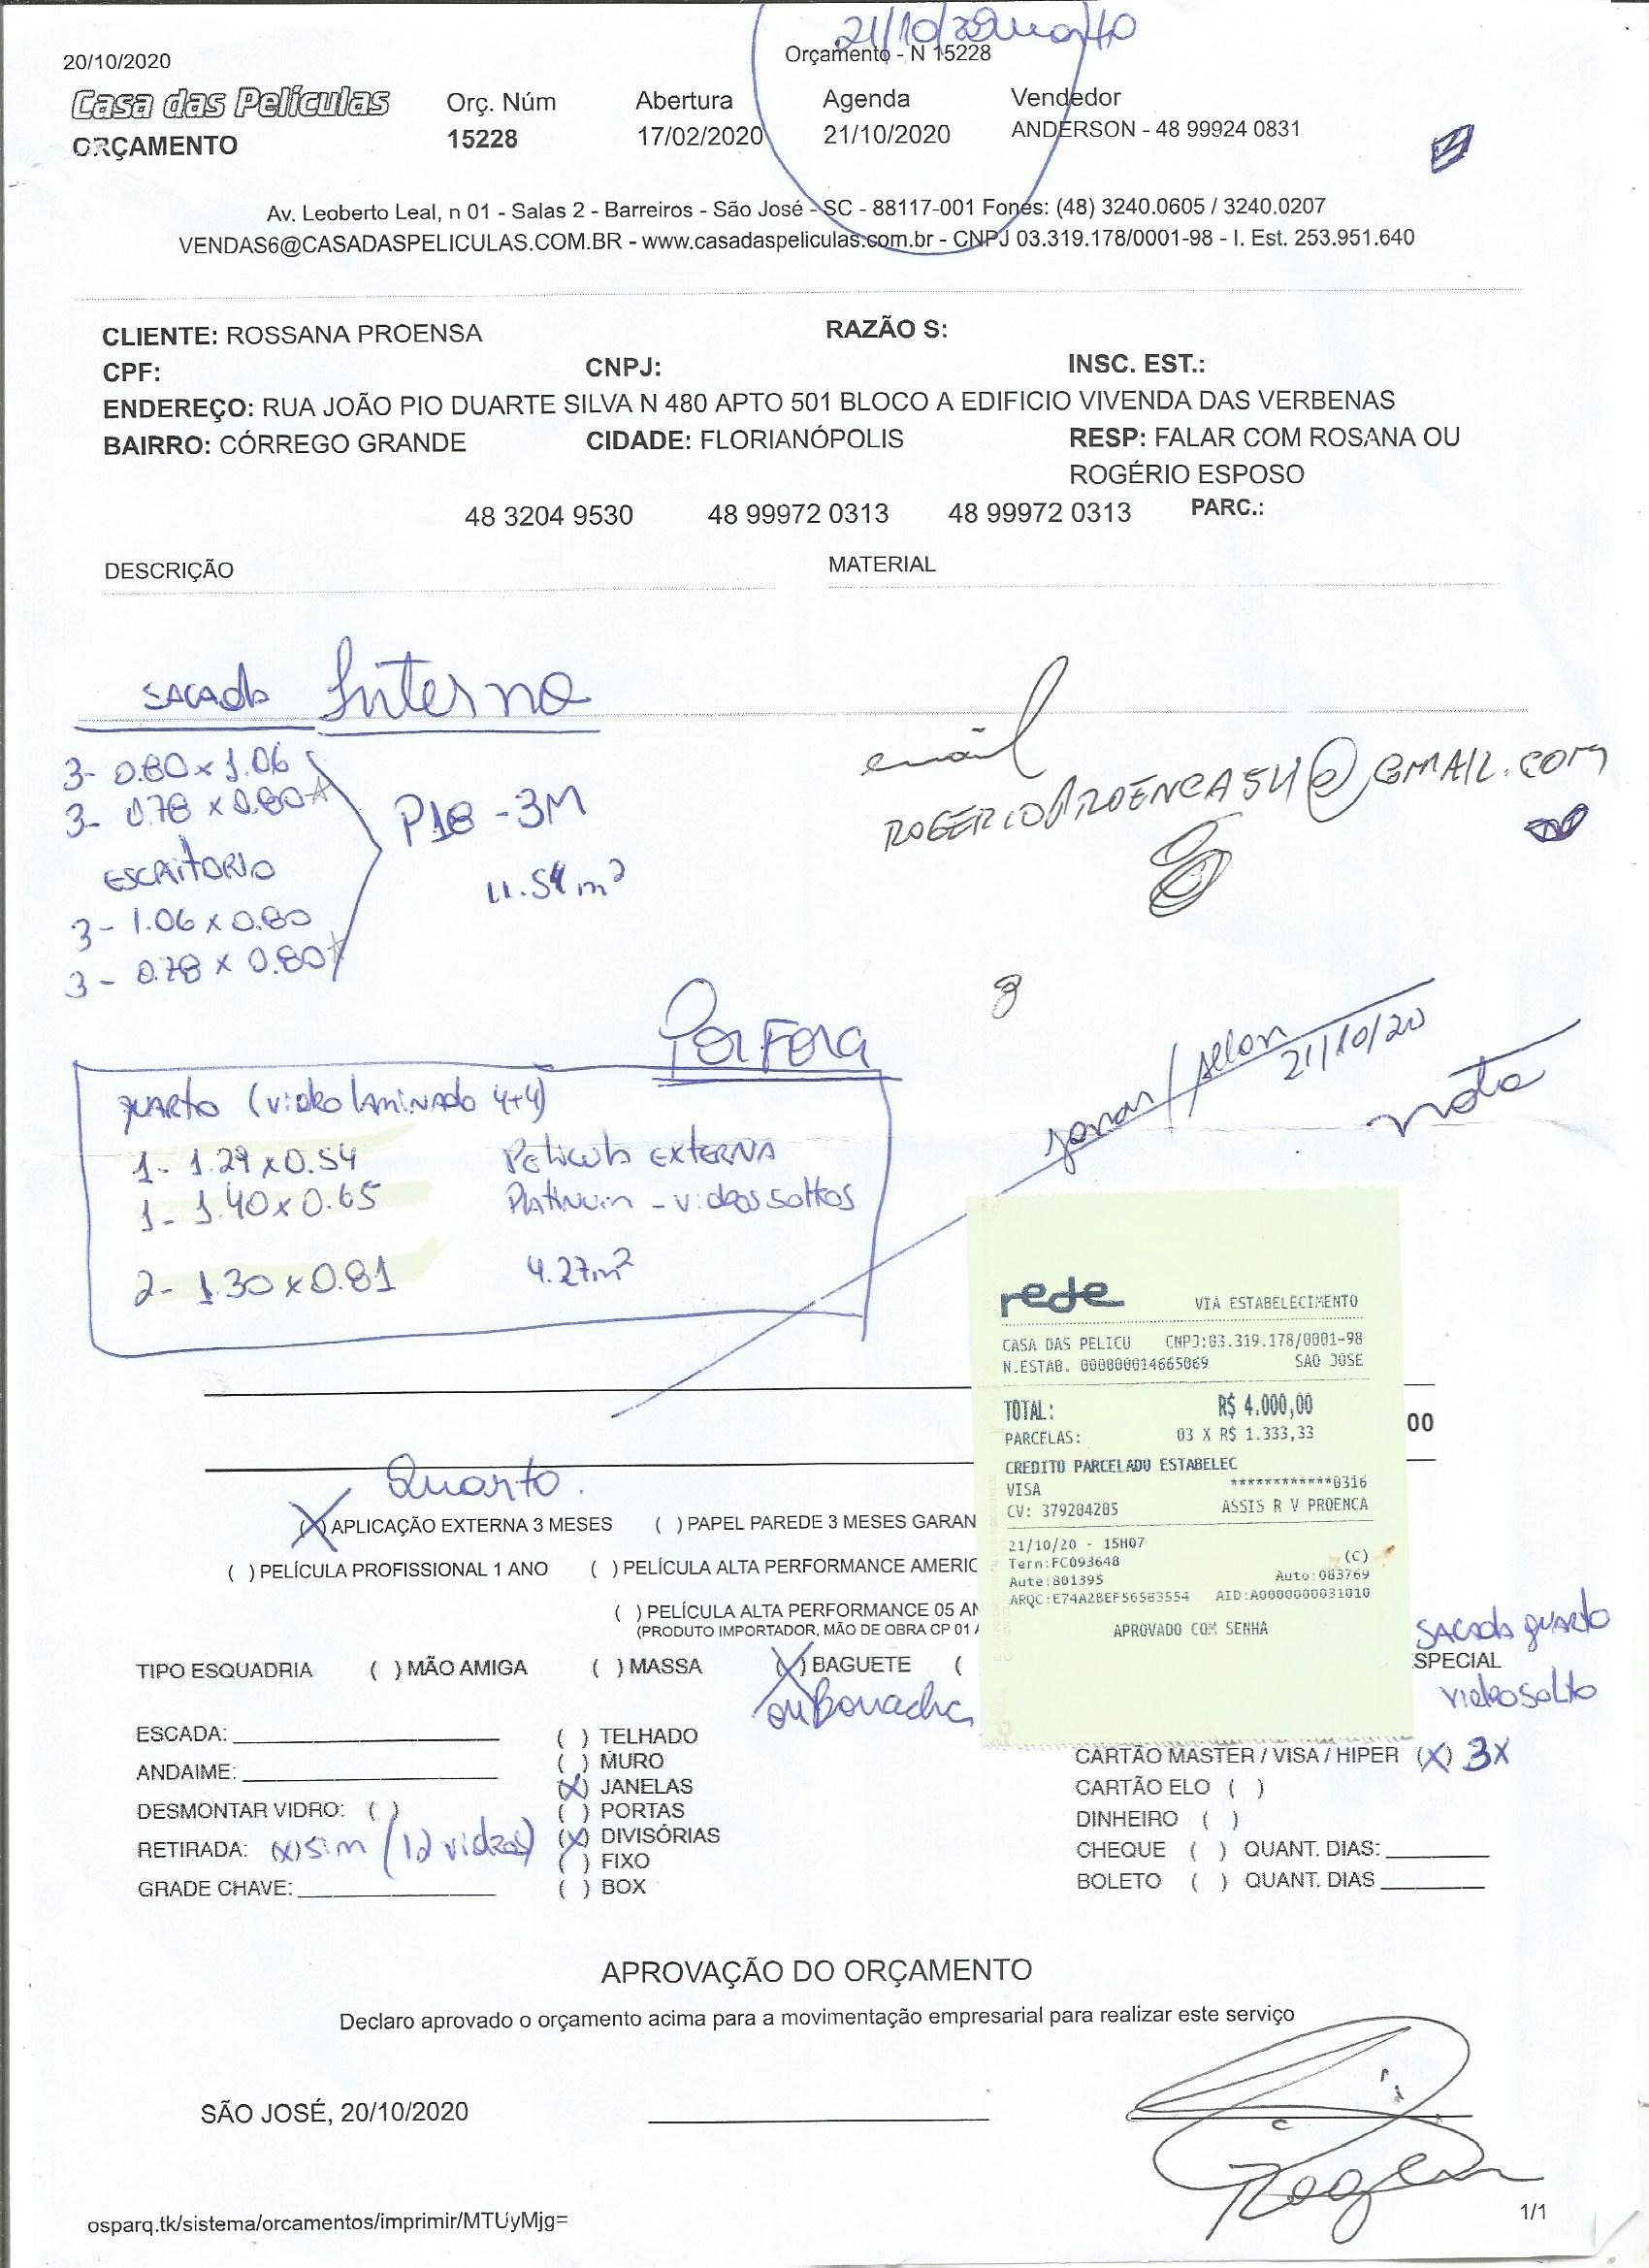 21/10/20
20/10/2020
Orçamento - N 15228
Casa das Películas
ORÇAMENTO
Orç. Núm
15228
Abertura
17/02/2020
Agenda
21/10/2020
Vendedor
ANDERSON - 48 99924 0831
Av. Leoberto Leal, n 01 - Salas 2 - Barreiros - São José - SC - 88117-001 Fones: (48) 3240.0605 / 3240.0207
VENDAS6@CASADASPELICULAS.COM.BR - www.casadaspeliculas.com.br - CNPJ 03.319.178/0001-98 - I. Est. 253.951.640
CLIENTE: ROSSANA PROENSA RAZÃO S:
CPF: CNPJ: INSC. EST.:
ENDEREÇO: RUA JOÃO PIO DUARTE SILVA N 480 APTO 501 BLOCO A EDIFICIO VIVENDA DAS VERBENAS
BAIRRO: CÓRREGO GRANDE CIDADE: FLORIANÓPOLIS RESP: FALAR COM ROSANA OU
ROGÉRIO ESPOSO
48 3204 9530 48 99972 0313 48 99972 0313 PARC.:
DESCRIÇÃO MATERIAL
SACADA Interno
3- 0.80 x 1.06
3- 0.78 x 0.80
ESCRITORIO
3- 1.06 x 0.80
3- 0.78 x 0.80
P18 - 3M
11.54 m²
email
ROGERIOPROENCA54@GMAIL.COM
Por Fora
quarto (vidro laminado 4+4)
1- 1.29 x 0.54 Pelicula EXTERNA
1- 1.40 x 0.65 Platinum - vidros soltos
2- 1.30 x 0.81 4.27m²
21/10/20
nota
rede VIA ESTABELECIMENTO
CASA DAS PELICU CNPJ:03.319.178/0001-98
N.ESTAB. 000000014665069 SAO JOSE
TOTAL: R$ 4.000,00
PARCELAS: 03 X R$ 1.333,33
CREDITO PARCELADO ESTABELEC
VISA ************0316
CV: 379284205 ASSIS R V PROENCA
21/10/20 - 15H07
(C)
Term:FC093648
Aute:801395 Auto:083769
ARQC:E74A2BEF56583554 AID:A0000000031010
APROVADO COM SENHA
00
Quarto.
(X) APLICAÇÃO EXTERNA 3 MESES ( ) PAPEL PAREDE 3 MESES GARAN
( ) PELÍCULA PROFISSIONAL 1 ANO ( ) PELÍCULA ALTA PERFORMANCE AMERIC
( ) PELÍCULA ALTA PERFORMANCE 05 AN
(PRODUTO IMPORTADOR, MÃO DE OBRA CP 01 A
SACADA quarto
TIPO ESQUADRIA ( ) MÃO AMIGA ( ) MASSA (X) BAGUETE ( SPECIAL
ou Borracha
vidro solto
ESCADA:
ANDAIME:
DESMONTAR VIDRO: ( )
RETIRADA: (x) sim (12 vidros)
GRADE CHAVE:
( ) TELHADO
( ) MURO
(X) JANELAS
( ) PORTAS
(X) DIVISÓRIAS
( ) FIXO
( ) BOX
CARTÃO MASTER / VISA / HIPER (X) 3X
CARTÃO ELO ( )
DINHEIRO ( )
CHEQUE ( ) QUANT. DIAS:
BOLETO ( ) QUANT. DIAS
APROVAÇÃO DO ORÇAMENTO
Declaro aprovado o orçamento acima para a movimentação empresarial para realizar este serviço
SÃO JOSÉ, 20/10/2020
osparq.tk/sistema/orcamentos/imprimir/MTUyMjg=
1/1